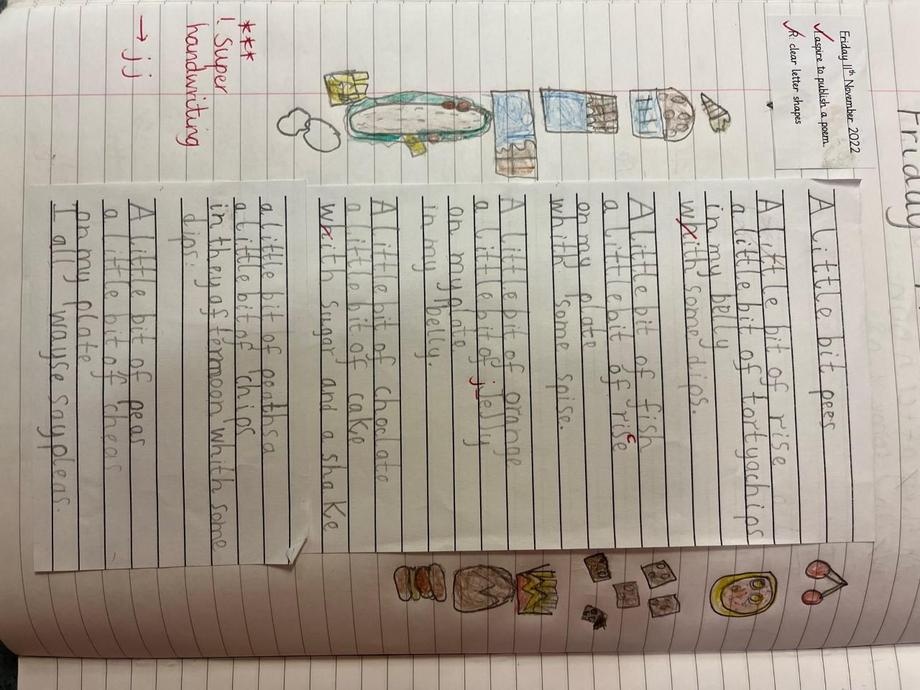 Friday
Friday 11th November 2022
I aspire to publish a poem.
R: clear letter shapes
A little bit pees
A little bit of rise
a little bit of tortyachips
in my belly
with some dips.
A little bit of fish
a little bit of risc
on my plate
whith some spise.
A little bit of orange
a little bit of jelly
on my plate
in my belly.
A little bit of choclate
a little bit of cake
with sugar and a shake
a little bit of
a little bit of chips
in they afternoon whith some
dips.
A little bit of peas
a little bit of cheas
on my plate
I all wayse say pleas.
***
! super
handwriting
→ j j